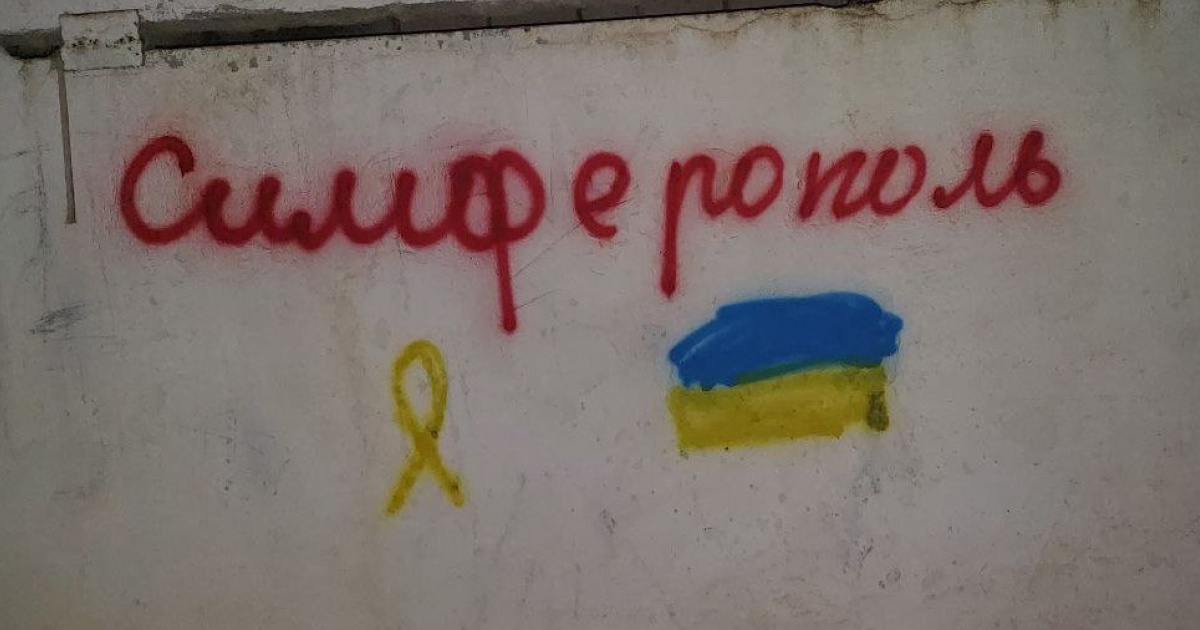 Симферополь